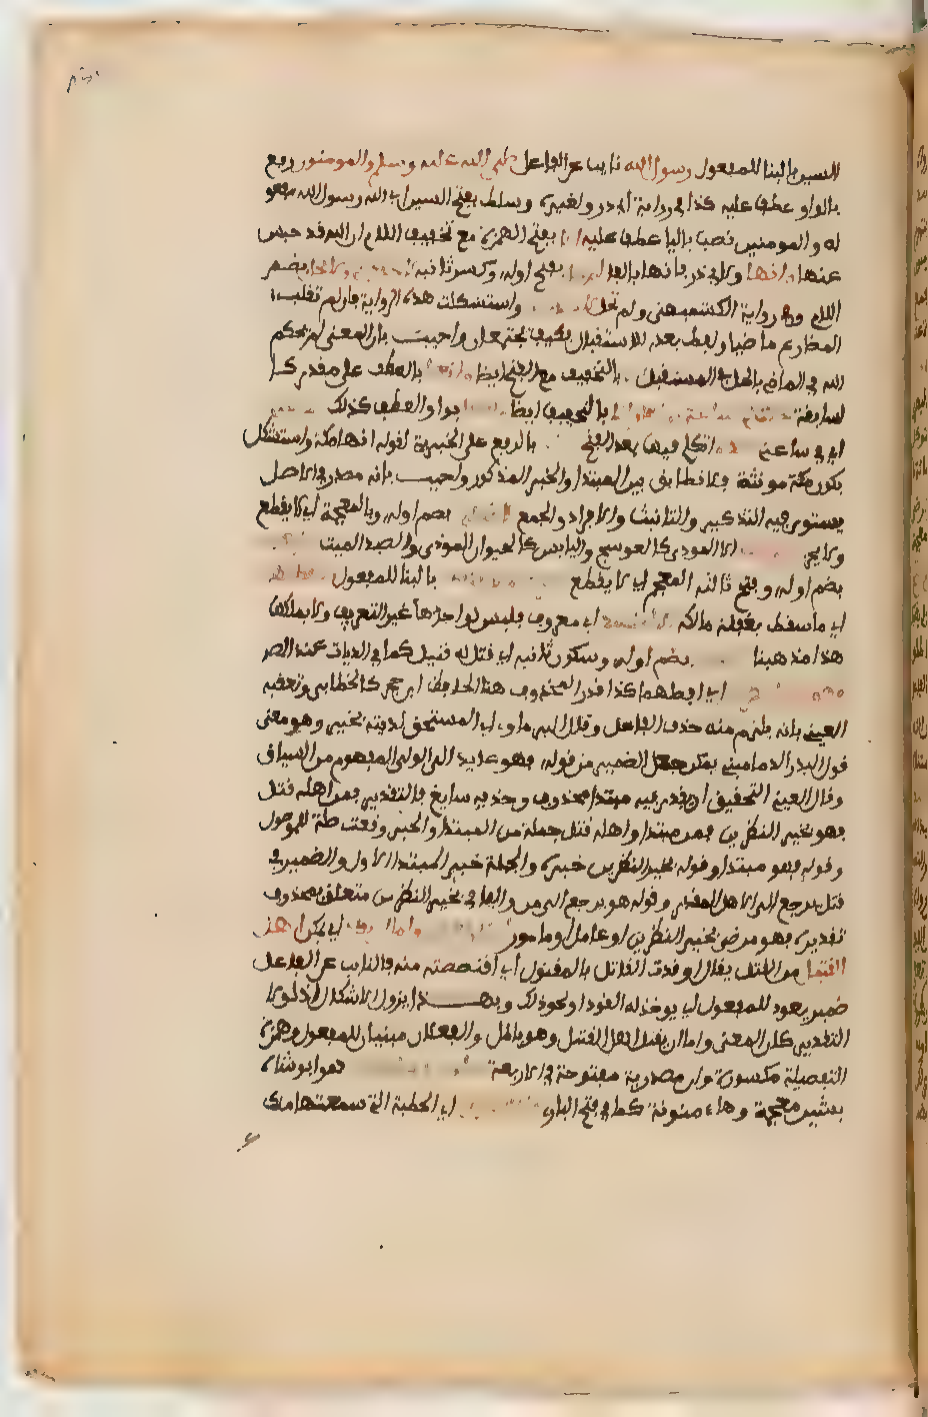 السين بالبنا للمفعول رسول الله نايب عن الفاعل صلى الله عليه وسلم والمومنون رفع
بالواو عطف عليه كذا في رواية ابي ذر ولغيره وسلط بفتح السين اي الله رسول الله مفعو
له والمومنين نصب باليا عطف عليه بفتح الهمزة مع تخفيف اللام ان الله قد حبس
عنها وانها ولابي ذر فانها بالفا بفتح اوله وكسر ثانيه بضم
اللام وهي رواية الكشميهني ولم تحل واستشكلت هذه الرواية بان لم تقلب
المضارع ماضيا ولفظ بعدي للاستقبال فكيف يجتمعان واجيب بان المعنى لم يحكم
الله في الماضي بالحل في المستقبل بالتخفيف مع الفتح ايضا بالعطف على مقدر كـا
لسابقة بالتخفيف ايضا بواو العطف كذلك
اي في ساعتي اتكلم فيها بعد الفتح بالرفع على الخبرية لقوله انها مكة واستشكل
بكون مكة مونثة فلا تطابق بين المبتدا والخبر المذكور واجيب بانه مصدر في الاصل
يستوي فيه التذكير والتانيث والافراد والجمع بضم اوله وبالمعجمة اي لا يقطع
الا الموذي كالعوسج واليابس كالحيوان الموذي والصيد الميت
بضم اوله وفتح ثالثه المعجم اي لا يقطع بالبنا للمفعول
اي ما سقط بغفلة مالكه اي معروف فليس لواجدها غير التعريف ولا يملكها
هذا مذهبنا بضم اوله وسكون ثانيه اي قتل له قتيل كما في الديات عند المصـ
اي افضلهما كذا قدر المحذوف هنا الحافظ ابن حجر كالخطابي وتعقبه
العيني بانه يلزم منه حذف الفاعل وقال البرماوي اي المستحق لديته بخير وهو معنى
قول البدر الدماميني يمكن جعل الضمير من قوله فهو عايد الى الولي المفهوم من السياق
وقال العيني التحقيق ان يقدر فيه مبتدا محذوف وحذفه سايغ فالتقدير فمن اهله قتل
فهو بخير النظرين فمن مبتدا واهله قتل جملة من المبتدا والخبر وقعت صلة للموصول
وقوله فهو مبتدا وقوله بخير النظرين خبره والجملة خبر المبتدا الاول والضمير في
قتل يرجع الى الاهل المقدر وقوله هو يرجع الى من والبا في بخير النظرين متعلق بمحذوف
تقديره فهو مرضي بخير النظرين او عامل او مامور واما اي يمكن اهل
القتيل من القتل يقال اقدت القاتل بالمقتول اي اقتصصته منه فالنايب عن الفاعل
ضمير يعود للمفعول اي يوخذ له القود او نحو ذلك وبهـــذا يزول الاشكال اذ لولا
التقدير كان المعنى واما ان يقتل اهل القتيل وهو باطل والفعلان مبنيان للمفعول وهمزة
التفصيلة مكسورة وان مصدرية مفتوحة في الاربعة هو ابو شاه
بشين معجمة وهاء منونة كما في فتح الباري اي الخطبة التي سمعتها منك